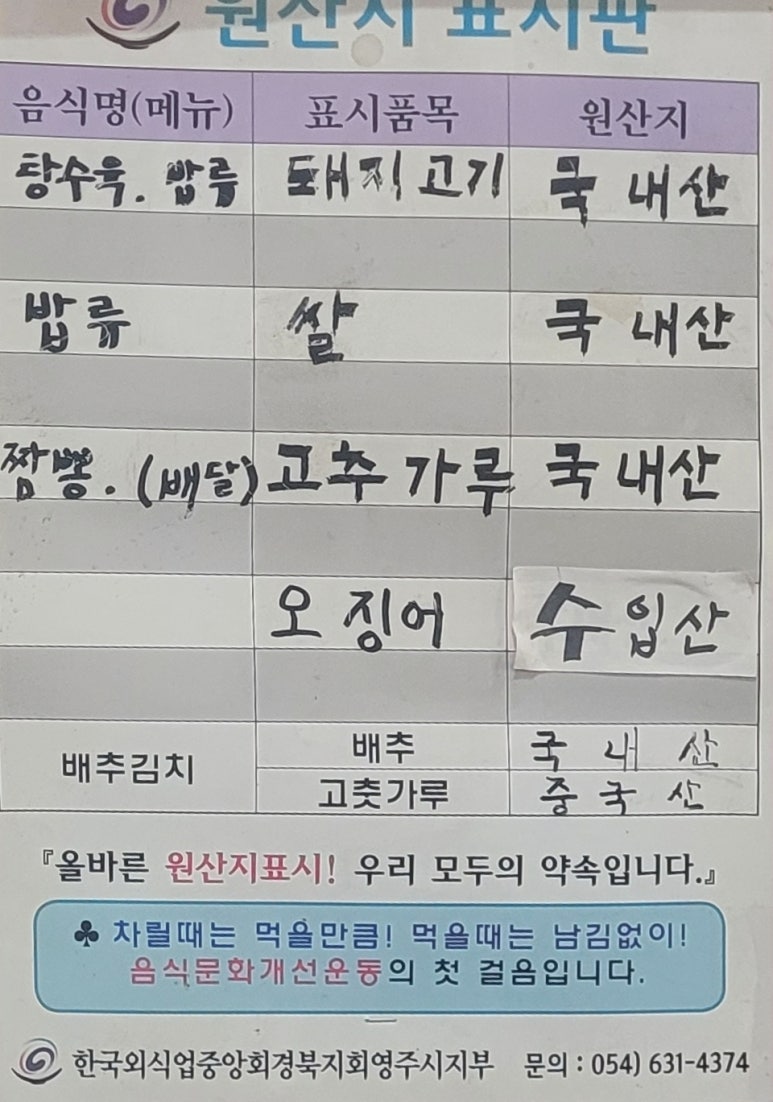 원산지 표시판
음식명(메뉴) 표시품목 원산지
탕수육. 밥류 돼지고기 국내산
밥류 쌀 국내산
짬뽕. (배달) 고추가루 국내산
오징어 수입산
배추김치 배추 국내산
고춧가루 중국산
『올바른 원산지표시! 우리 모두의 약속입니다.』
♣ 차릴때는 먹을만큼! 먹을때는 남김없이!
음식문화개선운동의 첫 걸음입니다.
한국외식업중앙회경북지회영주시지부 문의 : 054) 631-4374